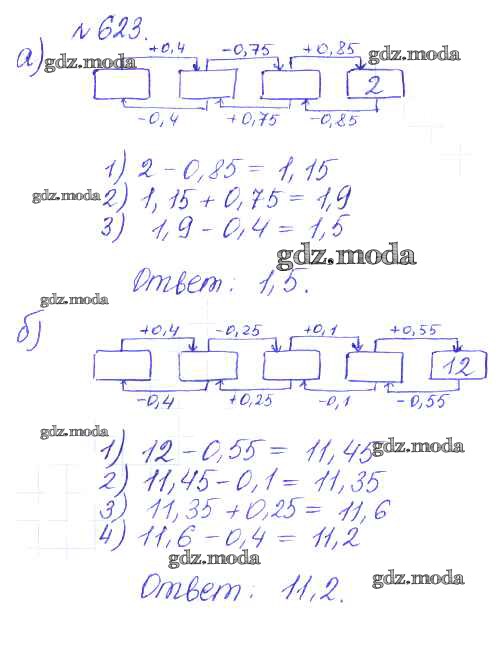 № 623.
а) +0,4 -0,75 +0,85
gdz.moda gdz.moda
2
-0,4 +0,75 -0,85
1) 2 - 0,85 = 1,15
gdz.moda 2) 1,15 + 0,75 = 1,9
3) 1,9 - 0,4 = 1,5
gdz.moda
Ответ: 1,5.
gdz.moda
б) +0,4 -0,25 +0,1 +0,55
12
-0,4 +0,25 -0,1 -0,55
gdz.moda
1) 12 - 0,55 = 11,45 gdz.moda
2) 11,45 - 0,1 = 11,35
3) 11,35 + 0,25 = 11,6
4) 11,6 - 0,4 = 11,2
gdz.moda
Ответ: 11,2. gdz.moda